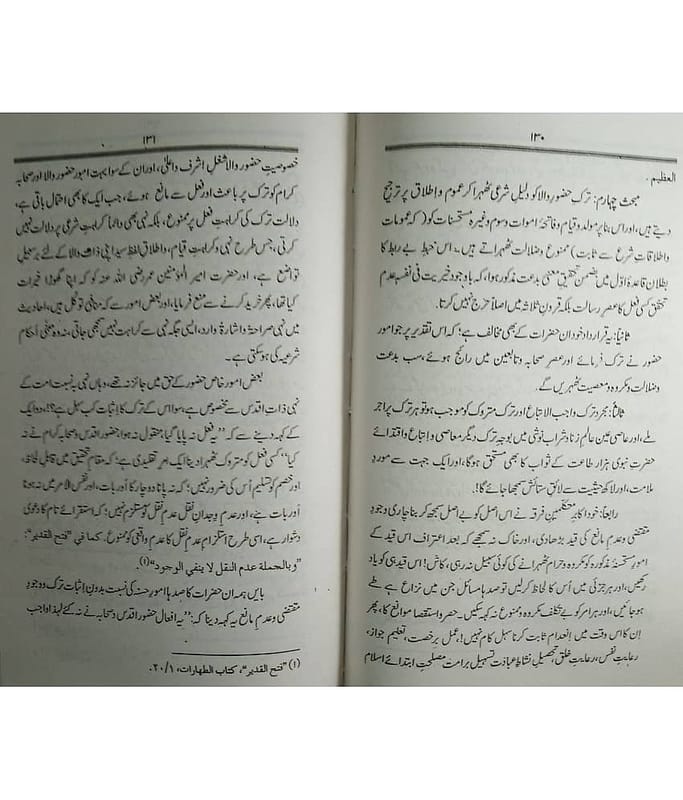 ۱۳۰
العظیم۔
مبحث چہارم: ترک حضور والا کو دلیلِ شرعی ٹھہرا کر عموم و اطلاق پر ترجیح
دیتے ہیں، اور اس بنا پر مولد و قیام و فاتحۂ اموات و سوم وغیرہ مستحسنات کو (کہ عمومات
و اطلاقاتِ شرع سے ثابت) ممنوع و ضلالت ٹھہراتے ہیں۔ اس خبطِ بے ربط کا
بطلان قاعدۂ اوّل میں بضمن تحقیقِ معنی بدعت مذکور ہوا، کہ باوجود خیریت فی نفسہٖ عدم
تحقق کسی فعل کا عصرِ رسالت بلکہ قرونِ ثلاثہ میں اصلاً حرج نہیں کرتا۔
ثانیاً: یہ قرارداد خود ان حضرات کے بھی مخالف ہے؛ کہ اس تقدیر پر جو امور
حضور نے ترک فرمائے اور عصرِ صحابہ و تابعین میں رائج ہوئے، سب بدعت
و ضلالت و مکروہ و معصیت ٹھہریں گے۔
ثالثاً: مجردِ ترک واجب الاتباع اور ترک متروک کو موجب ہو تو ہر ترک پر اجر
ملے، اور عاصی عین عالمِ زنا و شراب نوشی میں بوجہِ ترک دیگر معاصی و اتباع و اقتدائے
حضرتِ نبوی ہزار طاعت کے ثواب کا بھی مستحق ہوگا، اور ایک جہت سے موردِ
ملامت، اور لاکھ حیثیت سے لائقِ ستائش سمجھا جائے گا!۔
رابعاً: خود اکابر متکلمینِ فرقہ نے اس اصل کو بے اصل سمجھ کر بناچاری وجودِ
مقتضی و عدمِ مانع کی قید بڑھادی، اور خاک نہ سمجھے کہ بعد اعتراف اس قید کے
امورِ مستحسنہ مذکورہ کو مکروہ و حرام ٹھہرانے کی کوئی سبیل نہ رہی، کاش! اس قید ہی کو یاد
رکھیں، اور ہر جزئی میں اُس کا لحاظ کرلیں تو صدہا مسائل جن میں نزاع ہے طے
ہوجائیں، اور ہر امر کو بے تکلف مکروہ و ممنوع نہ کہہ سکیں۔ حصر و استقصا موانع کا، پھر
اِن کا اس وقت میں انعدام ثابت کرنا سہل کام نہیں!، عمل برخصت، تعلیم جواز،
رعایتِ نفس، رعایتِ خلق، تحصیلِ نشاطِ عبادت، تسہیل برامت مصلحتِ ابتدائے اسلام
۱۳۱
خصوصیتِ حضور والا شغلِ اشرف و اعلیٰ، اور ان کے سوا بہت امور حضور والا اور صحابہ
کرام کو ترک پر باعث اور فعل سے مانع ہوئے، جب ایک کا بھی احتمال باقی ہے،
دلالت ترک کی کراہتِ فعل پر ممنوع، بلکہ نہی بھی دائماً کراہتِ شرعی پر دلالت نہیں
کرتی، جس طرح نہی و کراہتِ قیام، و اطلاقِ لفظِ سید اپنی ذاتِ والا کے لئے برسبیلِ
تواضع ہے، اور حضرت امیر المؤمنین عمر رضی اللہ عنہ کو کہ اپنا گھوڑا خیرات
کیا تھا، پھر خرید کرنے سے منع فرمایا، اور بعض امور سے کہ منافیٔ توکل ہیں، احادیث
میں نہی صراحۃً و اشارۃً وارد، ایسی جگہ نہی سے کراہت نہیں سمجھی جاتی، نہ وہ مغیِّر احکام
شرعیہ کی ہوسکتی ہے۔
بعض امور خاص حضور کے حق میں جائز نہ تھے، وہاں نہی بہ نسبت امت کے
نہی ذاتِ اقدس سے مخصوص ہے، سوا اس کے ترک کا اِثبات کب سہل ہے؟!، دو ایک
کے کہہ دینے سے کہ: ”یہ فعل نہ پایا گیا، منقول نہ ہوا، حضور اقدس و صحابہ کرام نے نہ
کیا“ کسی فعل کو متروک ٹھہرا دینا ایک امرِ تقلیدی ہے؛ کہ مقامِ تحقیق میں قابلِ لحاظ،
اور خصم کو تسلیم اُس کی ضرور نہیں؛ کہ نہ پانا دو چار کا اَور بات، اور نفس الامر میں نہ ہونا
اَور بات ہے، اور عدمِ وِجدانِ نقل عدمِ نقل کو مستلزم نہیں؛ کہ استقرائے تام کا دعویٰ
دشوار ہے، اسی طرح استلزام عدمِ نقل کا عدمِ واقعی کو ممنوع۔ كما في ”فتح القدير“:
”وبالجملة عدم النقل لا ينفي الوجود“(۱)۔
بایں ہمہ ان حضرات کا صدہا امورِ حسنہ کی نسبت بدون اِثبات ترک و وجودِ
مقتضی و عدمِ مانع یہ کہہ دینا کہ: ”یہ افعال حضور اقدس و صحابہ نے نہ کئے لہٰذا واجب
(۱) ”فتح القدیر“، کتاب الطهارات، ۲۰/۱.